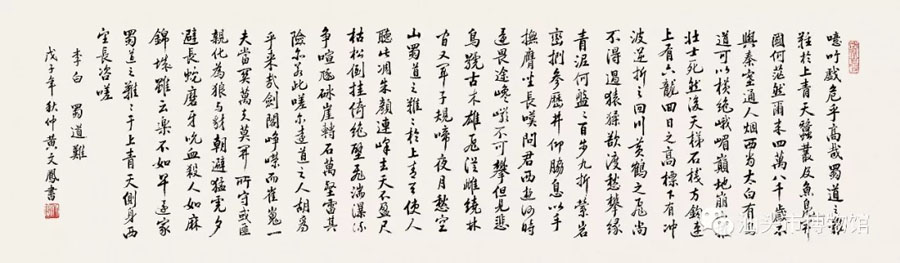 噫吁戲危乎高哉蜀道之難
難於上青天蠶叢及魚鳧開
國何茫然爾來四萬八千歲不
與秦塞通人烟西當太白有鳥
道可以橫絕峨嵋巔地崩山摧
壯士死然後天梯石棧方鉤連
上有六龍回日之高標下有沖
波逆折之回川黃鶴之飛尚
不得過猿猱欲渡愁攀緣
青泥何盤盤百步九折縈岩
巒捫參歷井仰脇息以手
撫膺坐長嘆問君西遊何時
還畏途巉岩不可攀但見悲
鳥號古木雄飛從雌繞林
間又聞子規啼夜月愁空
山蜀道之難難於上青天使人
聽此凋朱顏連峰去天不盈尺
枯松倒挂倚絕壁飛湍瀑流
爭喧豗砯崖轉石萬壑雷其
險也若此嗟爾遠道之人胡為
乎來哉劍閣崢嶸而崔嵬一
夫當關萬夫莫開所守或匪
親化為狼與豺朝避猛虎夕
避長蛇磨牙吮血殺人如麻
錦城雖云樂不如早還家
蜀道之難難於上青天側身西
望長咨嗟
李白 蜀道難
戊子年秋仲黃文鳳書
汕头市博物馆